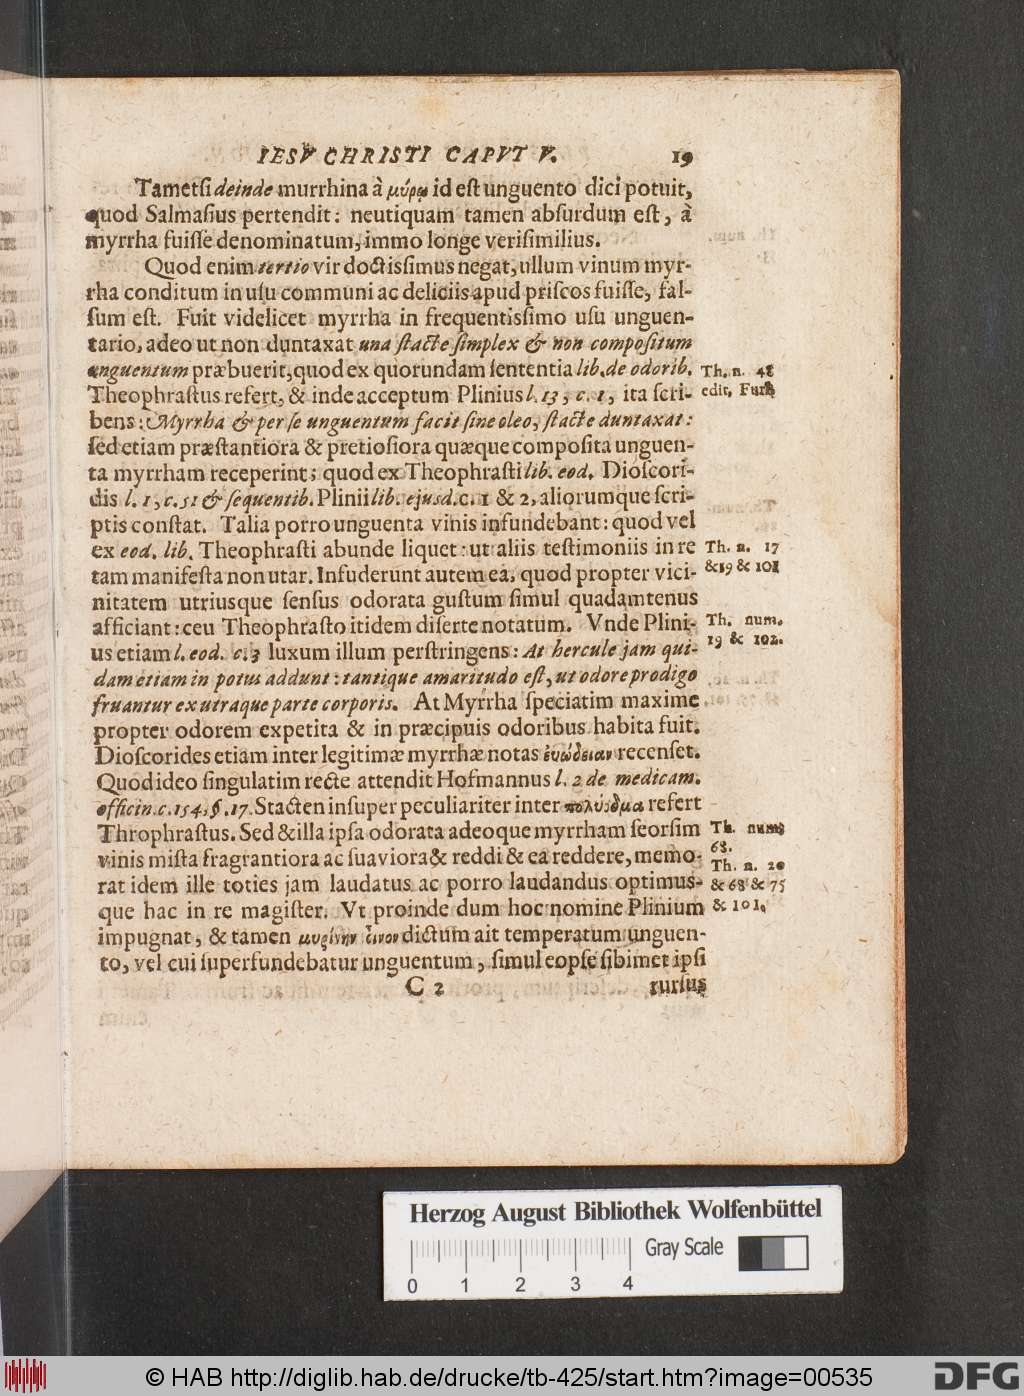 IESV CHRISTI CAPVT V. 19
Tametſi deinde murrhina à μύρῳ id eſt unguento dici potuit,
quod Salmaſius pertendit: neutiquam tamen abſurdum eſt, à
myrrha fuiſſe denominatum, immo longe veriſimilius.
Quod enim tertio vir doctisſimus negat, ullum vinum myr-
rha conditum in uſu communi ac deliciis apud priſcos fuiſſe, fal-
ſum eſt. Fuit videlicet myrrha in frequentisſimo uſu unguen-
tario, adeo ut non duntaxat una ſtacte ſimplex & non compoſitum
unguentum præbuerit, quod ex quorundam ſententia lib. de odorib.
Th. n. 48
Theophraſtus refert, & inde acceptum Plinius l. 13, c. 1, ita ſcri-
edit. Furl.
bens: Myrrha & per ſe unguentum facit ſine oleo, ſtacte duntaxat:
ſed etiam præſtantiora & pretioſiora quæque compoſita unguen-
ta myrrham receperint; quod ex Theophraſti lib. eod. Dioſcori-
dis l. 1, c. 51 & ſequentib. Plinii lib. ejusd. c. 1 & 2, aliorumque ſcri-
ptis conſtat. Talia porro unguenta vinis infundebant: quod vel
ex eod. lib. Theophraſti abunde liquet: ut aliis teſtimoniis in re
Th. n. 17
tam manifeſta non utar. Infuderunt autem ea, quod propter vici-
& 19 & 101
nitatem utriusque ſenſus odorata guſtum ſimul quadamtenus
afficiant: ceu Theophraſto itidem diſerte notatum. Vnde Plini-
Th. num.
us etiam l. eod. c. 3 luxum illum perſtringens: At hercule jam qui-
19 & 102.
dam etiam in potus addunt: tantique amaritudo eſt, ut odore prodigo
fruantur ex utraque parte corporis. At Myrrha ſpeciatim maxime
propter odorem expetita & in præcipuis odoribus habita fuit.
Dioſcorides etiam inter legitimæ myrrhæ notas ἐυώδειαν recenſet.
Quod ideo ſingulatim recte attendit Hofmannus l. 2 de medicam.
officin. c. 154, §. 17. Stacten inſuper peculiariter inter πολύοδμα refert
Throphraſtus. Sed & illa ipſa odorata adeoque myrrham ſeorſim
Th. num.
68.
vinis miſta fragrantiora ac ſuaviora & reddi & ea reddere, memo-
Th. n. 20
rat idem ille toties jam laudatus ac porro laudandus optimus-
& 68 & 75
que hac in re magiſter. Vt proinde dum hoc nomine Plinium
& 101.
impugnat, & tamen μυῤῥίνην ὀῖνον dictum ait temperatum unguen-
to, vel cui ſuperfundebatur unguentum, ſimul eopſe ſibimet ipſi
C 2 rurſus
Herzog August Bibliothek Wolfenbüttel
Gray Scale
0 1 2 3 4
© HAB http://diglib.hab.de/drucke/tb-425/start.htm?image=00535
DFG